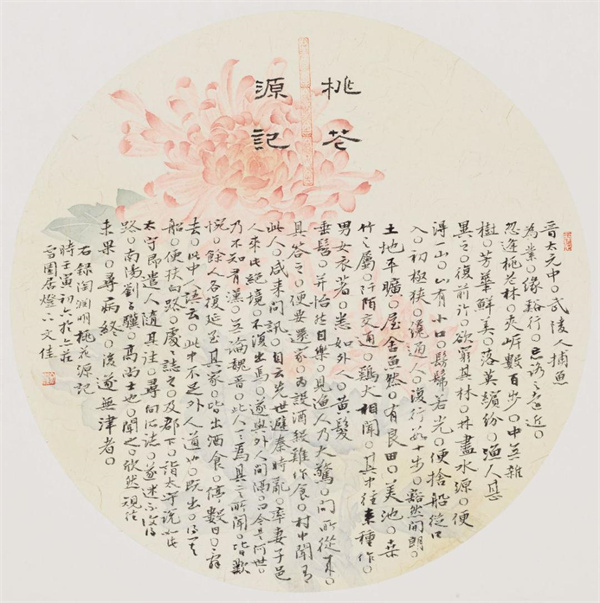 桃花
源記
晋太元中○武陵人捕魚
為業○緣谿行○忘路之遠近○
忽逢桃花林○夾岍數百步○中无雜
樹○芳華鮮美○落英繽紛○漁人甚
異之○復前行○欲窮其林○林盡水源○便
得一山○山有小口○髣髴若光○便捨船從口
入○初極狹○纔通人○復行數十步○豁然開朗○
土地平曠○屋舍儼然○有良田○美池○桑
竹之屬○阡陌交通○鷄犬相聞○其中往來種作○
男女衣著○悉如外人○黄髮
垂髫○并怡然自樂○見漁人乃大驚○問所從來○
具答之○便要還家○為設酒殺雞作食○村中聞有
此人○咸来問訊○自云先世避秦時亂○率妻子邑
人來此絕境○不復出焉○遂與外人間隔○問今是何世○
乃不知有漢○无論魏晉○此人一一為具言所聞○皆歎
惋○餘人各復延至其家○皆出酒食○停數日○辭
去○此中人語云○此中不足外人道也○既出○得其
船○便扶向路○處處誌之○及郡下○詣太守説如此○
太守即遣人隨其往○尋向所誌○遂迷不復得
路○南陽劉子驥○高尚士也○聞之○欣然規往○
未果○尋病終○後遂無津者○
右録陶淵明桃花源記
時壬寅初六於上莊
雪圃居燈下文佳